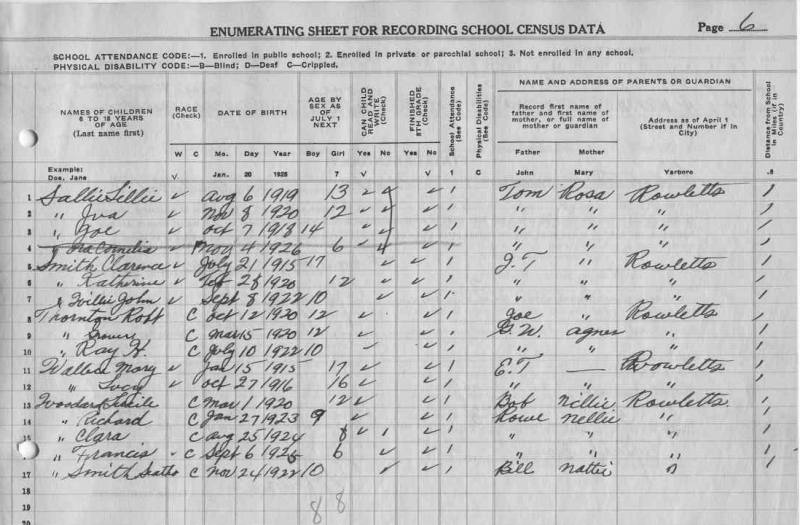 ENUMERATING SHEET FOR RECORDING SCHOOL CENSUS DATA Page 6
SCHOOL ATTENDANCE CODE:—1. Enrolled in public school; 2. Enrolled in private or parochial school; 3. Not enrolled in any school.
PHYSICAL DISABILITY CODE:—B—Blind; D—Deaf C—Crippled.
NAMES OF CHILDREN 6 TO 18 YEARS OF AGE (Last name first)
RACE (Check)
W C
DATE OF BIRTH
Mo. Day Year
AGE BY SEX AS OF JULY 1 NEXT
Boy Girl
CAN CHILD READ AND WRITE (Check)
Yes No
FINISHED 8TH GRADE (Check)
Yes No
School Attendance (See Code)
Physical Disabilities (See Code)
NAME AND ADDRESS OF PARENTS OR GUARDIAN
Record first name of father and first name of mother, or full name of mother or guardian
Father Mother
Address as of April 1 (Street and Number if in City)
Distance from School in Miles (if in Country)
Example: Doe, Jane V. Jan. 20 1925 7 V V 1 C John Mary Yarboro .8
1 Sallie Lillie ✓ Aug 6 1919 13 ✓ ✓ 1 Tom Rosa Rowletts 1
2 " Iva ✓ Nov 8 1920 12 ✓ ✓ 1 " " " 1
3 " Joe ✓ Oct 7 1918 14 ✓ ✓ 1 " " " 1
4 " Cornelia ✓ 4 1926 6 ✓ ✓ 1 " " " 1
5 Smith Clarence ✓ July 21 1915 17 ✓ ✓ 1 J.T " Rowletts 1
6 " Katherine ✓ 28 1920 12 ✓ ✓ 1 " " " 1
7 " Willie John ✓ Sept 8 1922 10 ✓ ✓ 1 " " " 1
8 Thornton Robt C Oct 12 1920 12 ✓ ✓ 1 Joe Rowletts 1
9 " Grover C Mar 15 1920 12 ✓ ✓ 1 G.W. Agnes " 1
10 " Ray H. C July 10 1922 10 ✓ ✓ 1 " " " 1
11 Mary ✓ Jan 15 1915 17 ✓ ✓ 1 E.T — Rowletts 1
12 " Lucy ✓ Oct 27 1916 16 ✓ ✓ 1 " " " 1
13 C Mar 1 1920 12 ✓ ✓ 1 Bob Nillie Rowletts 1
14 " Richard C Jan 27 1923 9 ✓ ✓ 1 Rowe Nellie " 1
15 " Clara C Aug 25 1924 8 ✓ ✓ 1 " " " 1
16 " Francis C Sept 6 1925 6 ✓ ✓ 1 " " " 1
17 " Smith C Nov 24 1922 10 ✓ ✓ 1 Bill Nattie " 1
18
19
8 8
20